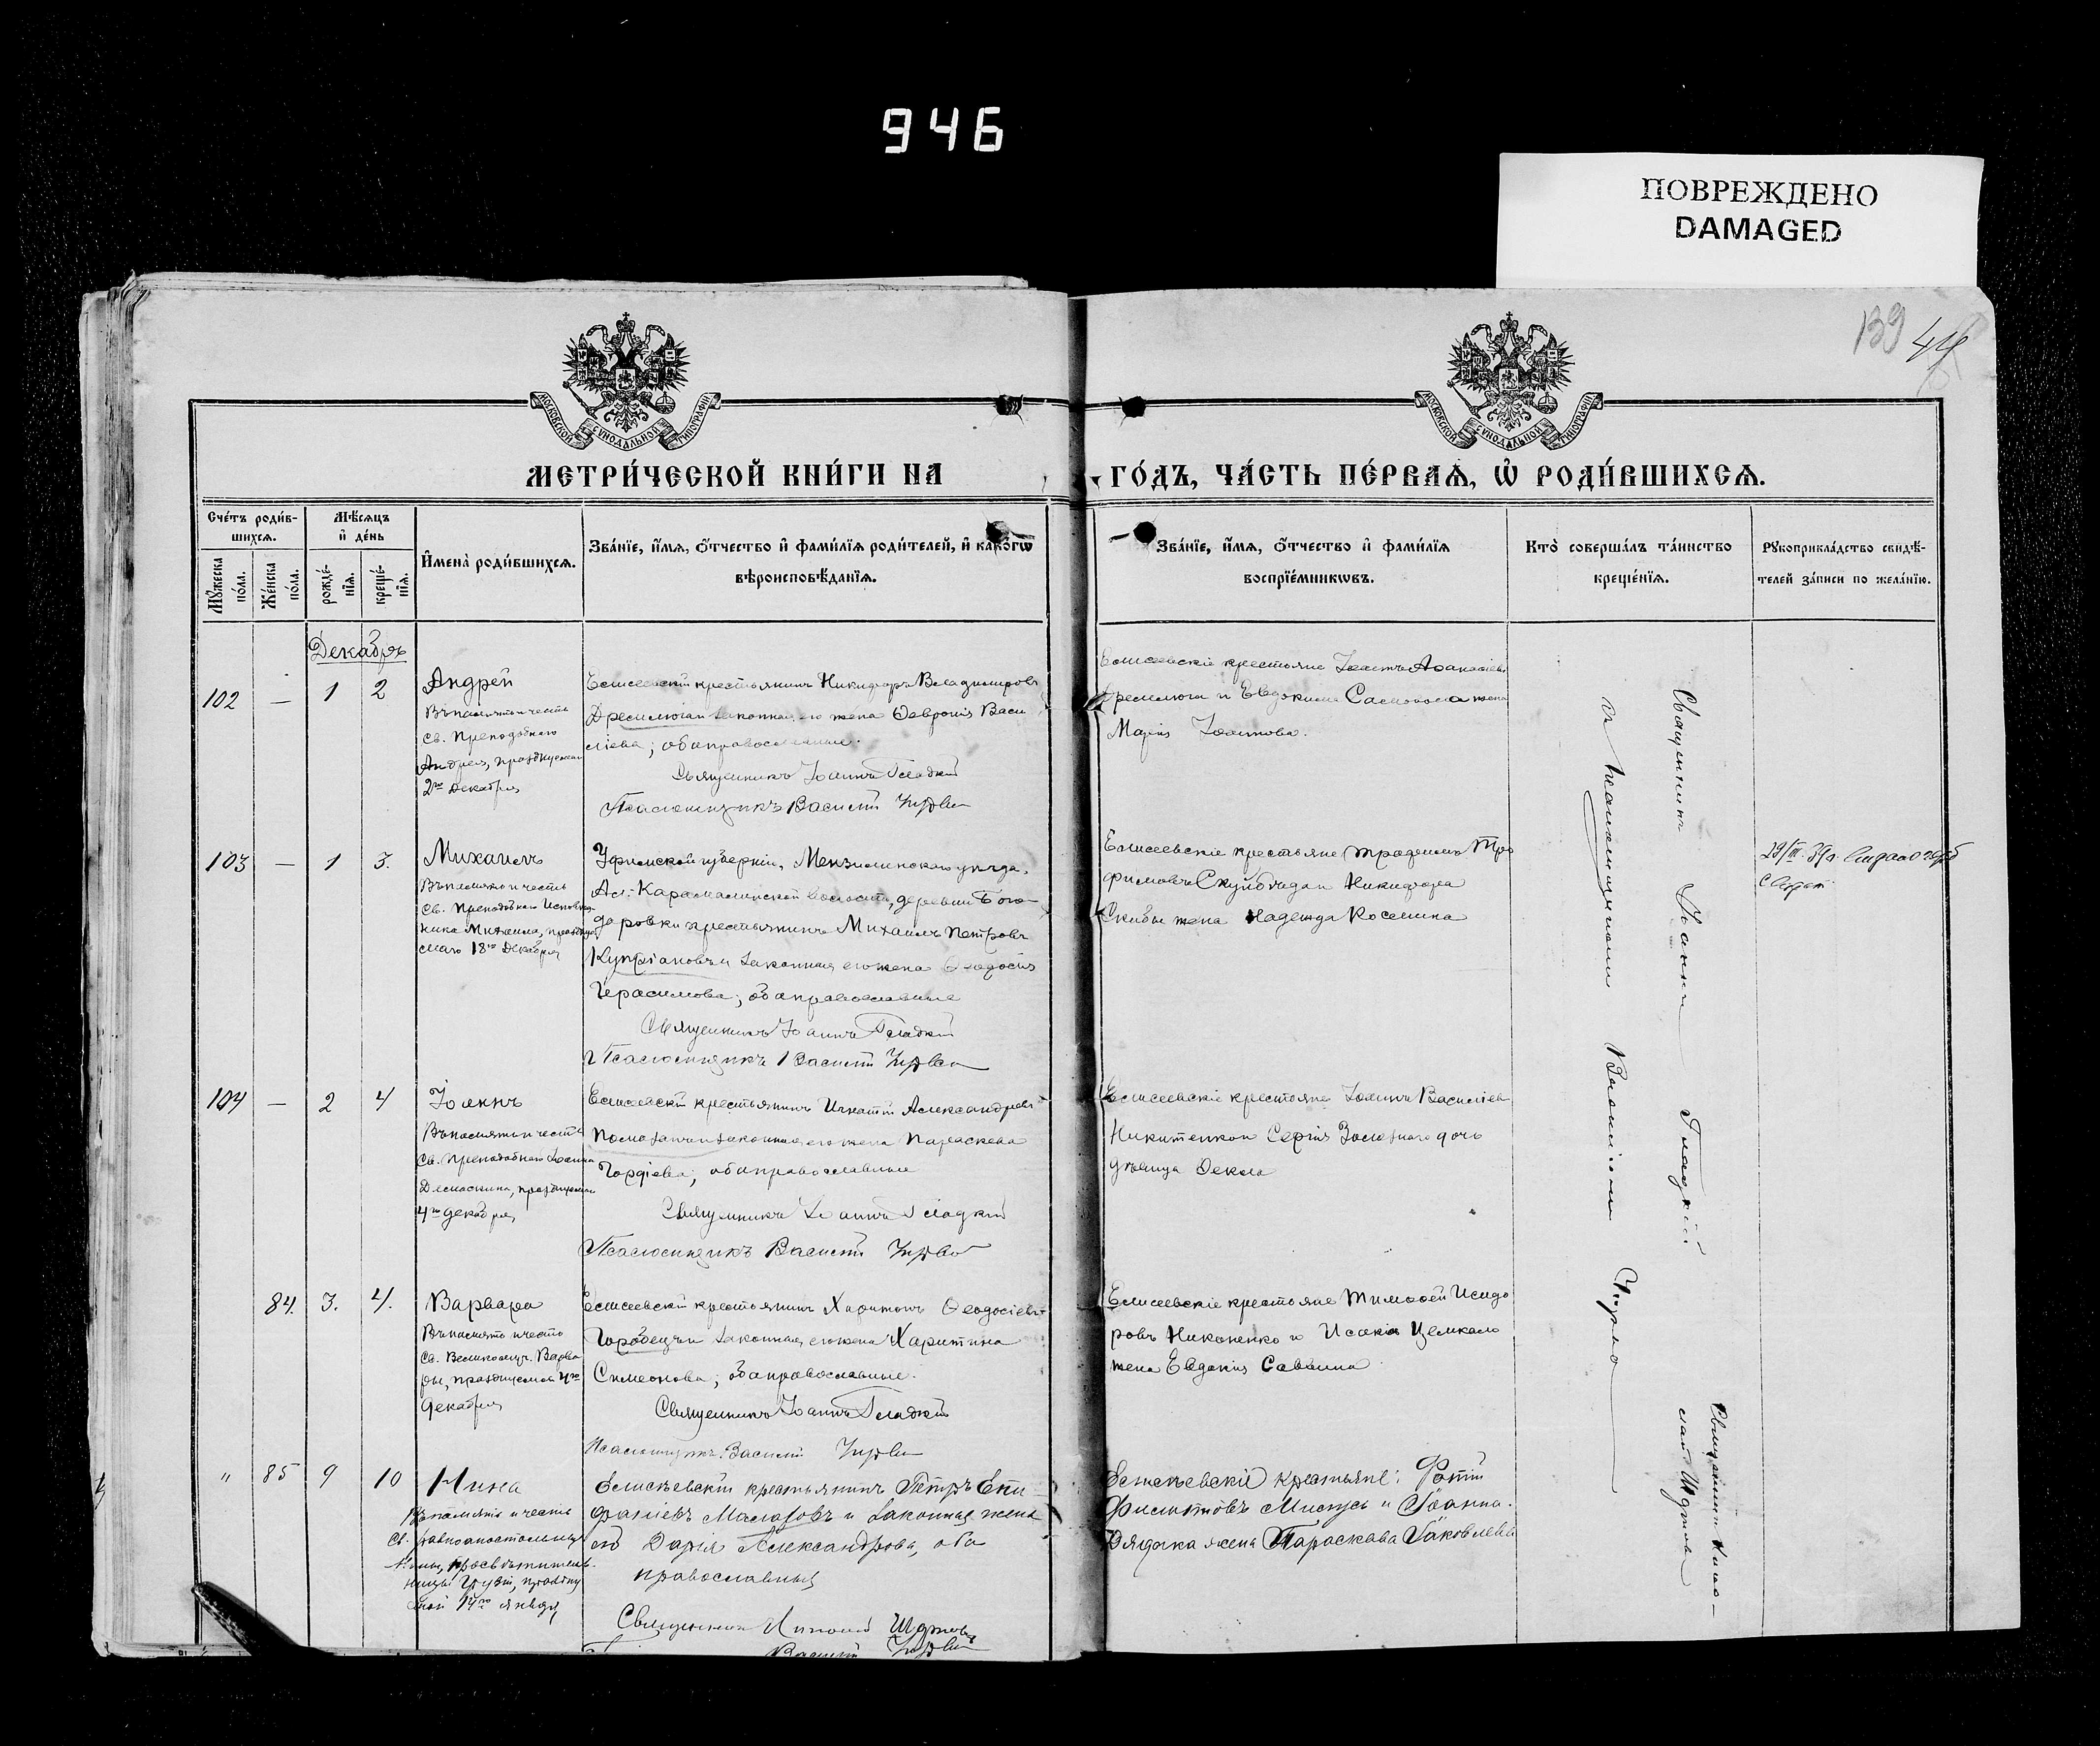 946
ПОВРЕЖДЕНО
DAMAGED
139
МОСКОВСКОЙ СѴНОДАЛЬНОЙ ТИПОГРАФІИ
МОСКОВСКОЙ СѴНОДАЛЬНОЙ ТИПОГРАФІИ
МЕТРИ́ЧЕСКОЙ КНИ́ГИ НА
ГО́ДЪ, ЧА́СТЬ ПЕ́РВАѦ, Ѡ РОДИ́ВШИХСѦ.
Сче́тъ роди́в-
шихсѧ.
Мѣ́сѧцъ
и де́нь
Мꙋ́жеска
по́ла.
Же́нска
по́ла.
рожде́-
нїѧ.
креще́-
нїѧ.
Имена̀ роди́вшихсѧ.
Зва́нїе, и́мѧ, о́тчество и фами́лїѧ роди́телей, и како́гѡ
вѣроисповѣ́данїѧ.
Зва́нїе, и́мѧ, о́тчество и фами́лїѧ
воспрїе́мникѡвъ.
Кто̀ соверша́лъ та́инство
креще́нїѧ.
Рꙋкоприкла́дство свидѣ́-
телей за́писи по жела́нїю.
Декабрь
102 — 1 2
Андрей
Въ память и честь
Св. Преподобнаго
Андрея, празднуемаго
2го Декабря
Елисеевскій крестьянинъ Никифоръ Владимировъ
Дремлюга и законная его жена Ѳевронія Васи
ліева; оба православные.
Священникъ Іоаннъ Гладкій
Псаломщикъ Василій
Елисеевскіе крестьяне Іоаннъ Аѳанасіевъ
Дремлюга и Евдокима жена
Марія Іоаннова.
103 — 1 3.
Михаилъ
Въ память и честь
Св. Преподобнаго Исповѣд-
ника Михаила, праздну
емаго 18го Декабря
Уфимской губерніи, Мензелинскаго уѣзда,
Ал.-Карамалинской волости, деревни Бого-
даровки крестьянинъ Михаилъ Петровъ
Купріановъ и законная его жена Ѳеодосія
Герасимова; оба православные
Священникъ Іоаннъ Гладкій
Псаломщикъ Василій
Елисеевскіе крестьяне Тро
фимовъ и Никифора
Скибы жена Надежда Косьмина
104 — 2 4
Іоаннъ
Въ память и честь
Св. Преподобнаго Іоанна
Дамаскина, празднуемаго
4го декабря
Елисеевскій крестьянинъ Игнатій Александровъ
и законная его жена Параскева
Гордіева; оба православные
Священникъ Іоаннъ Гладкій
Псаломщикъ Василій
Елисеевскіе крестьяне Іоаннъ Василіев
Никитенко и Сергія дочь
дѣвица Ѳекла
84. 3. 4.
Варвара
Въ память и честь
Св. Великомуч. Варва
ры, празднуемой 4го
декабря
Елисеевскій крестьянинъ Харитонъ Ѳеодосіевъ
Городецъ и законная его жена Харитина
Симеонова; оба православные.
Священникъ Іоаннъ Гладкій
Псаломщикъ Василій
Елисеевскіе крестьяне Тимоѳей Исидо
ровъ Никоненко и Исакія Цемкало
жена Евдокія Саввина
" 85 9 10
Нина
Въ память и честь
Св. равноапостольныя
Нины, просвѣтитель-
ницы Грузіи, праздну
емой 14го января
Елисѣевскій крестьянинъ Петръ Епи-
фаніевъ и законная жена
его Дарія Александрова, оба
православныя
Священникъ Николай
Василій
Елисѣевскіе крестьяне: Фотій
Филиповъ и Іоанна
Дядька жена Параскава Іаковлева
Священникъ Іоаннъ Гладкій
и Псаломщикомъ Василіемъ
Священникъ Нико-
лай